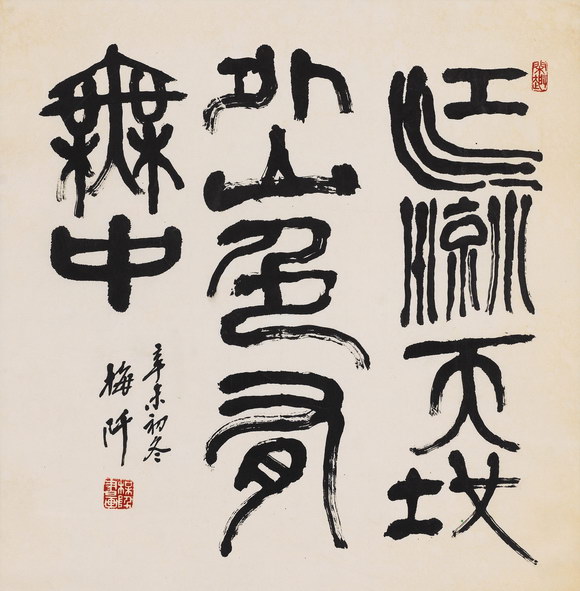 江流天地
外山色有
無中
辛未初冬
梅阡